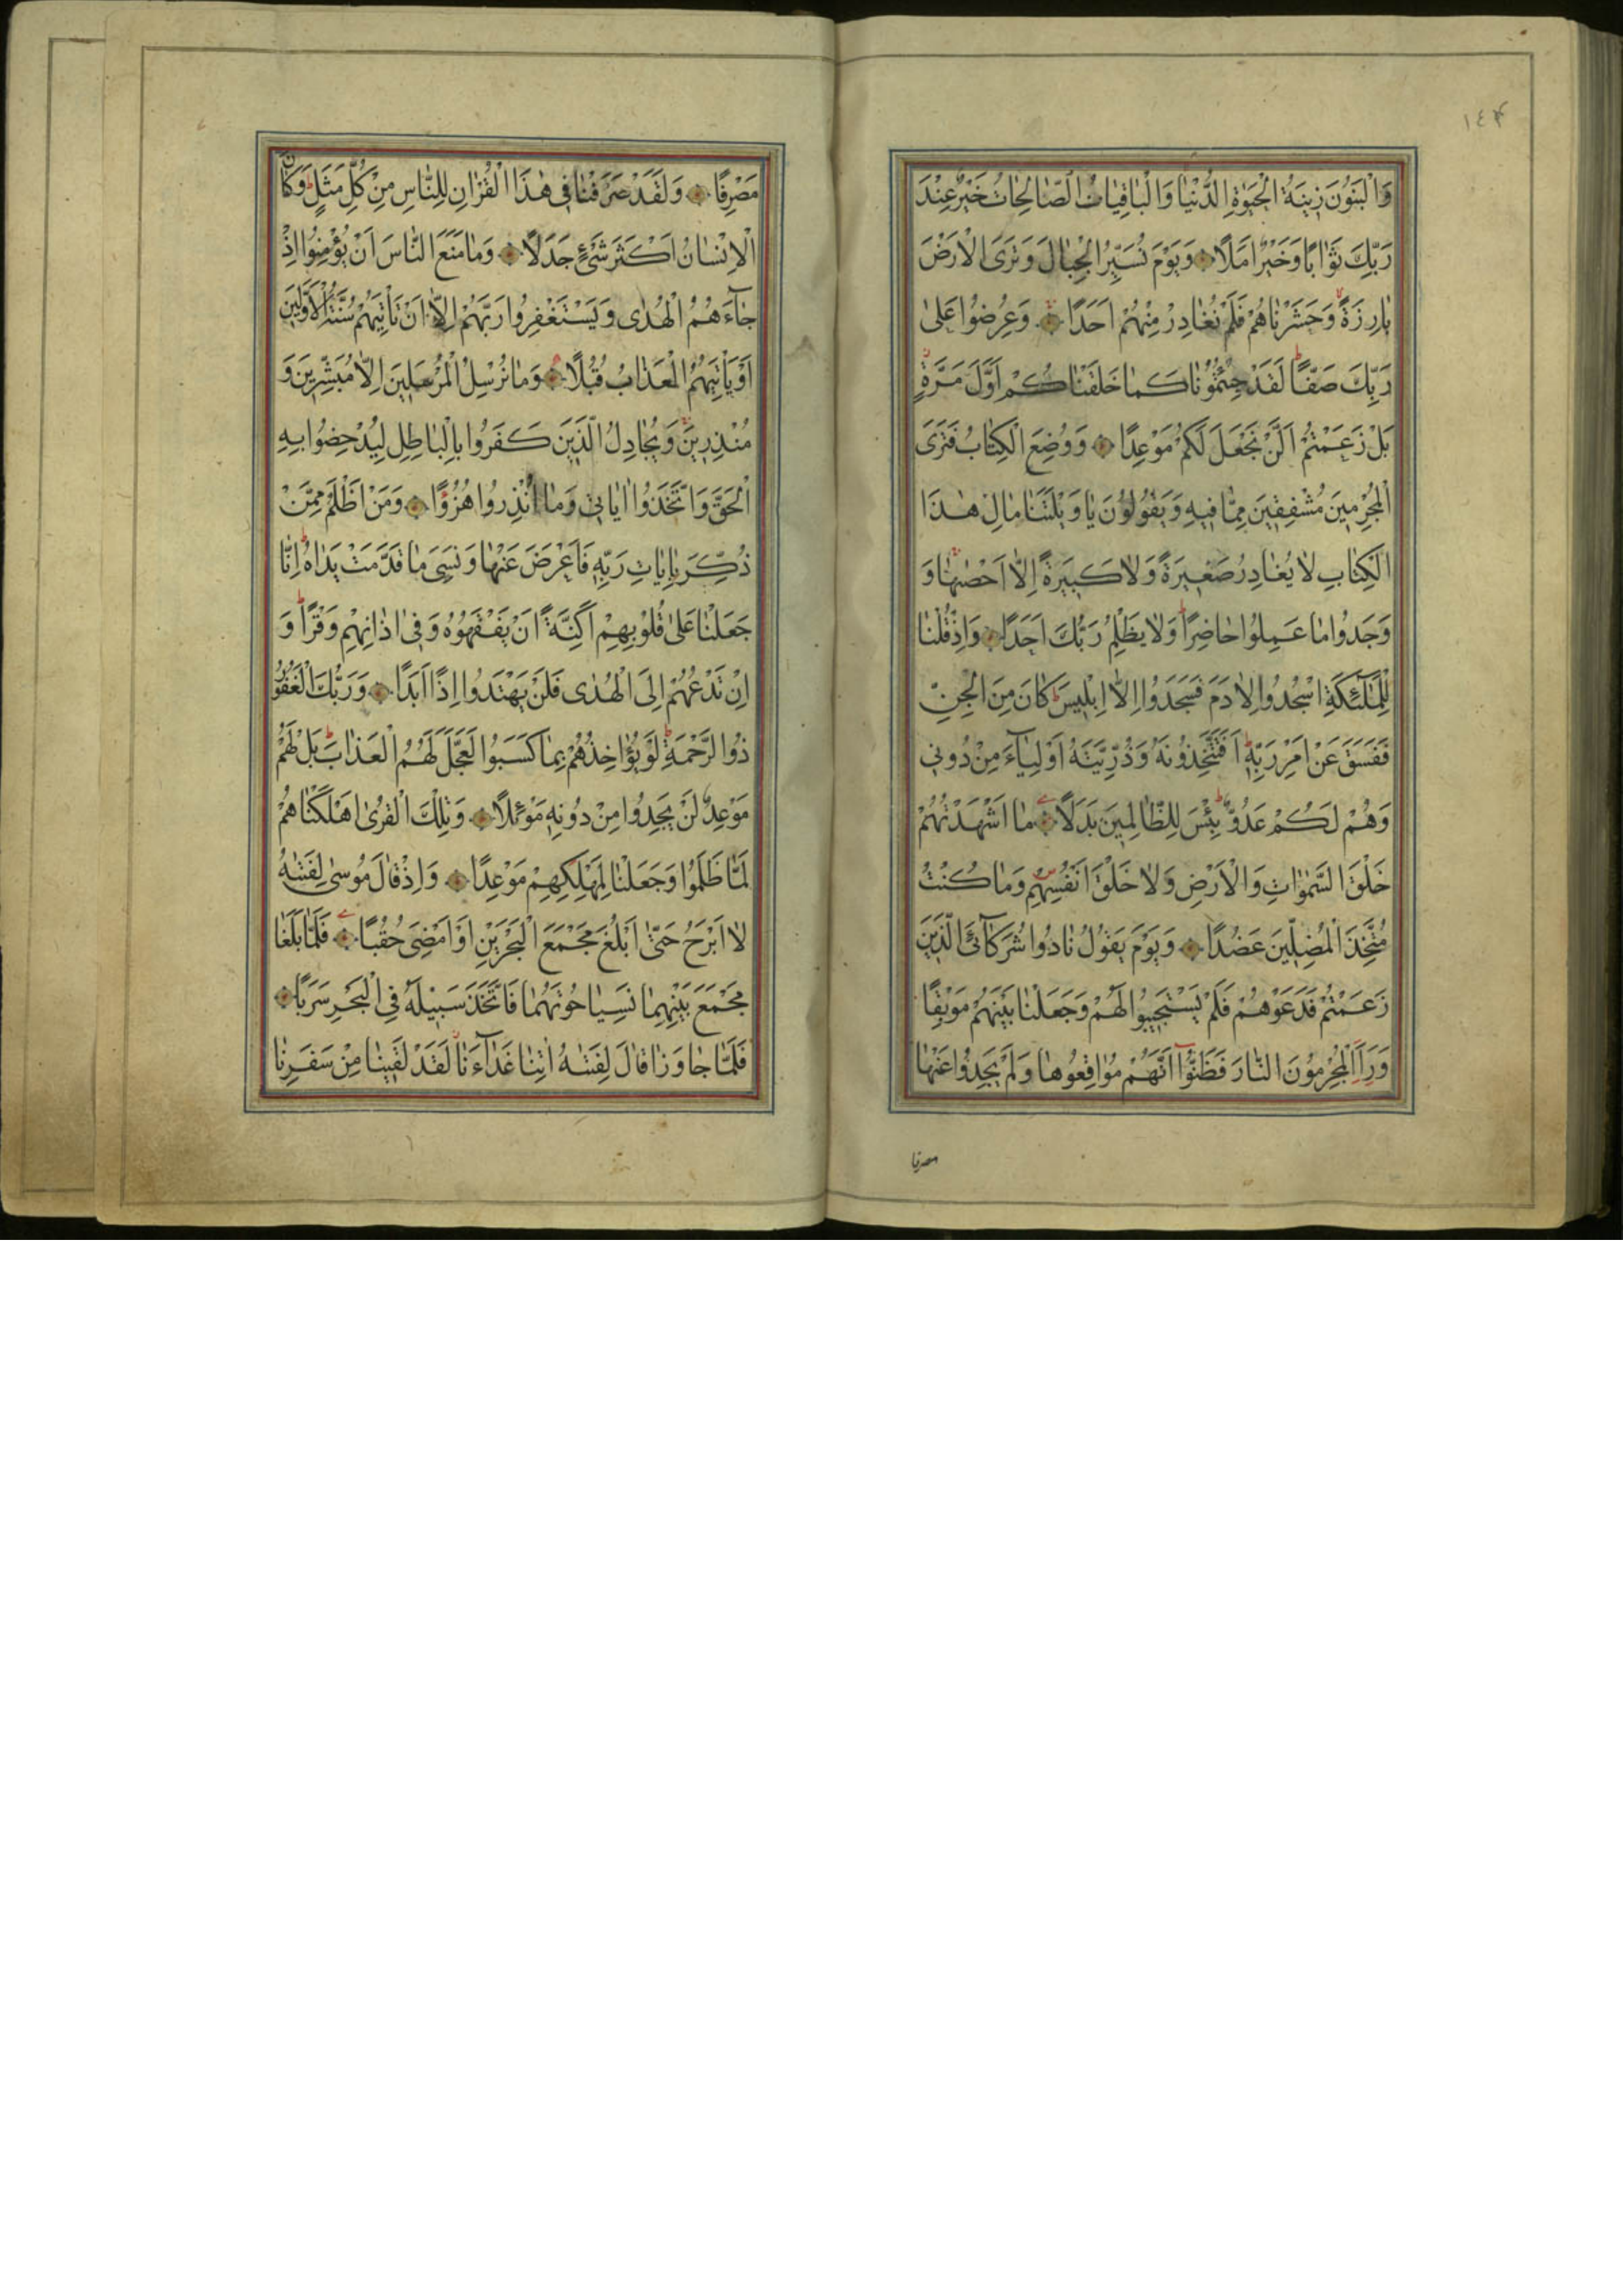 ١٤٣
وَالْبَنُونَ زِينَةُ الْحَيٰوةِ الدُّنْيَا وَالْبَاقِيَاتُ الصَّالِحَاتُ خَيْرٌ عِنْدَ
رَبِّكَ ثَوَابًا وَخَيْرٌ اَمَلًا وَيَوْمَ نُسَيِّرُ الْجِبَالَ وَتَرَى الْاَرْضَ
بَارِزَةً وَحَشَرْنَاهُمْ فَلَمْ نُغَادِرْ مِنْهُمْ اَحَدًا وَعُرِضُوا عَلٰى
رَبِّكَ صَفًّا لَقَدْ جِئْتُمُونَا كَمَا خَلَقْنَاكُمْ اَوَّلَ مَرَّةٍ
بَلْ زَعَمْتُمْ اَلَّنْ نَجْعَلَ لَكُمْ مَوْعِدًا وَوُضِعَ الْكِتَابُ فَتَرَى
الْمُجْرِمِينَ مُشْفِقِينَ مِمَّا فِيهِ وَيَقُولُونَ يَا وَيْلَتَنَا مَالِ هٰذَا
الْكِتَابِ لَا يُغَادِرُ صَغِيرَةً وَلَا كَبِيرَةً اِلَّا اَحْصٰيهَا وَ
وَجَدُوا مَا عَمِلُوا حَاضِرًا وَلَا يَظْلِمُ رَبُّكَ اَحَدًا وَاِذْ قُلْنَا
لِلْمَلٰٓئِكَةِ اسْجُدُوا لِاٰدَمَ فَسَجَدُوا اِلَّا اِبْلِيسَ كَانَ مِنَ الْجِنِّ
فَفَسَقَ عَنْ اَمْرِ رَبِّهِ اَفَتَتَّخِذُونَهُ وَذُرِّيَّتَهُ اَوْلِيَآءَ مِنْ دُونِي
وَهُمْ لَكُمْ عَدُوٌّ بِئْسَ لِلظَّالِمِينَ بَدَلًا مَا اَشْهَدْتُهُمْ
خَلْقَ السَّمٰوَاتِ وَالْاَرْضِ وَلَا خَلْقَ اَنْفُسِهِمْ وَمَا كُنْتُ
مُتَّخِذَ الْمُضِلِّينَ عَضُدًا وَيَوْمَ يَقُولُ نَادُوا شُرَكَآئِيَ الَّذِينَ
زَعَمْتُمْ فَدَعَوْهُمْ فَلَمْ يَسْتَجِيبُوا لَهُمْ وَجَعَلْنَا بَيْنَهُمْ مَوْبِقًا
وَرَاَ الْمُجْرِمُونَ النَّارَ فَظَنُّوٓا اَنَّهُمْ مُوَاقِعُوهَا وَلَمْ يَجِدُوا عَنْهَا
مصرفا
مَصْرِفًا وَلَقَدْ صَرَّفْنَا فِي هٰذَا الْقُرْاٰنِ لِلنَّاسِ مِنْ كُلِّ مَثَلٍ وَكَانَ
الْاِنْسَانُ اَكْثَرَ شَيْءٍ جَدَلًا وَمَا مَنَعَ النَّاسَ اَنْ يُؤْمِنُوا اِذْ
جَآءَهُمُ الْهُدٰى وَيَسْتَغْفِرُوا رَبَّهُمْ اِلَّا اَنْ تَاْتِيَهُمْ سُنَّةُ الْاَوَّلِينَ
اَوْ يَاْتِيَهُمُ الْعَذَابُ قُبُلًا وَمَا نُرْسِلُ الْمُرْسَلِينَ اِلَّا مُبَشِّرِينَ وَ
مُنْذِرِينَ وَيُجَادِلُ الَّذِينَ كَفَرُوا بِالْبَاطِلِ لِيُدْحِضُوا بِهِ
الْحَقَّ وَاتَّخَذُوا اٰيَاتِي وَمَا اُنْذِرُوا هُزُوًا وَمَنْ اَظْلَمُ مِمَّنْ
ذُكِّرَ بِاٰيَاتِ رَبِّهِ فَاَعْرَضَ عَنْهَا وَنَسِيَ مَا قَدَّمَتْ يَدَاهُ اِنَّا
جَعَلْنَا عَلٰى قُلُوبِهِمْ اَكِنَّةً اَنْ يَفْقَهُوهُ وَفِي اٰذَانِهِمْ وَقْرًا وَ
اِنْ تَدْعُهُمْ اِلَى الْهُدٰى فَلَنْ يَهْتَدُوا اِذًا اَبَدًا وَرَبُّكَ الْغَفُورُ
ذُو الرَّحْمَةِ لَوْ يُؤَاخِذُهُمْ بِمَا كَسَبُوا لَعَجَّلَ لَهُمُ الْعَذَابَ بَلْ لَهُمْ
مَوْعِدٌ لَنْ يَجِدُوا مِنْ دُونِهِ مَوْئِلًا وَتِلْكَ الْقُرٰى اَهْلَكْنَاهُمْ
لَمَّا ظَلَمُوا وَجَعَلْنَا لِمَهْلِكِهِمْ مَوْعِدًا وَاِذْ قَالَ مُوسٰى لِفَتٰيهُ
لَا اَبْرَحُ حَتّٰى اَبْلُغَ مَجْمَعَ الْبَحْرَيْنِ اَوْ اَمْضِيَ حُقُبًا فَلَمَّا بَلَغَا
مَجْمَعَ بَيْنِهِمَا نَسِيَا حُوتَهُمَا فَاتَّخَذَ سَبِيلَهُ فِي الْبَحْرِ سَرَبًا
فَلَمَّا جَاوَزَا قَالَ لِفَتٰيهُ اٰتِنَا غَدَآءَنَا لَقَدْ لَقِينَا مِنْ سَفَرِنَا